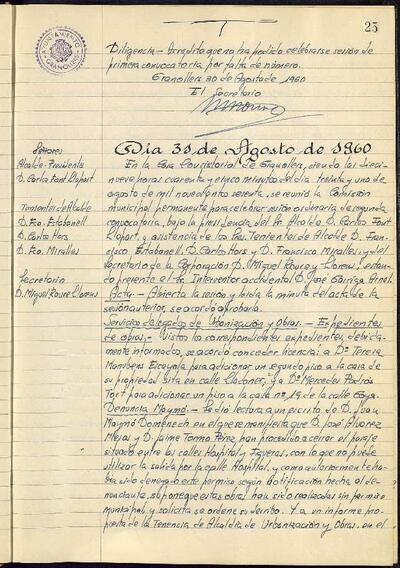 25
AYUNTAMIENTO
GRANOLLERS
Diligencia.- Acredito que no ha podido celebrarse sesión de
primera convocatoria por falta de número.
Granollers 30 de Agosto de 1960
El Secretario
Dia 31 de Agosto de 1960
Señores
Alcalde-Presidente
D. Carlos Font Llopart
Tenientes de Alcalde
D. Fco. Estabanell
D. Carlos Hors
D. Fco. Miralles
Secretario
D. Miguel Roure Llorens
En la Casa Consistorial de Granollers, siendo las dieci-
nueve horas cuarenta y cinco minutos del día treinta y uno de
agosto de mil novecientos sesenta, se reunió la Comisión
municipal permanente para celebrar sesión ordinaria de segunda
convocatoria, bajo la presidencia del Sr. Alcalde D. Carlos Font
Llopart, y asistencia de los Sres. Tenientes de Alcalde D. Fran-
cisco Estabanell, D. Carlos Hors y D. Francisco Miralles y del
secretario de la Corporación D. Miguel Roure y Llorens, estan-
do presente el Sr. Interventor accidental D. José Garriga Arnal.
Acta.- Abierta la sesión y leída la minuta del acta de la
sesión anterior, se acordó aprobarla.
Servicios delegados de Urbanización y Obras.- Expedientes
de obras.- Vistos los correspondientes expedientes, debida-
mente informados, se acordó conceder licencia: a Dª Teresa
Montsens Escayola para adicionar un segundo piso a la casa de
su propiedad sita en calle Lladoner, y a Dª Mercedes Padrós
Tort para adicionar un piso a la casa nº 19 de la calle Goya.
Denuncia Maymó.- Se dio lectura a un escrito de D. Juan
Maymó Doménech en el que se manifiesta que D. José Alvarez
Mejas y D. Jaime Tormo Pérez han procedido a cerrar el pasaje
situado entre las calles Hospital y Figueras, con lo que no puede
utilizar la salida por la calle Hospital, y como autoritariamente ha-
bía sido denegado este permiso según notificación hecha al de-
nunciante, supone que estas obras han sido realizadas sin permiso
municipal y solicita se ordene su derribo. Y a un informe pro-
puesta de la Tenencia de Alcaldía de Urbanización y Obras, en el